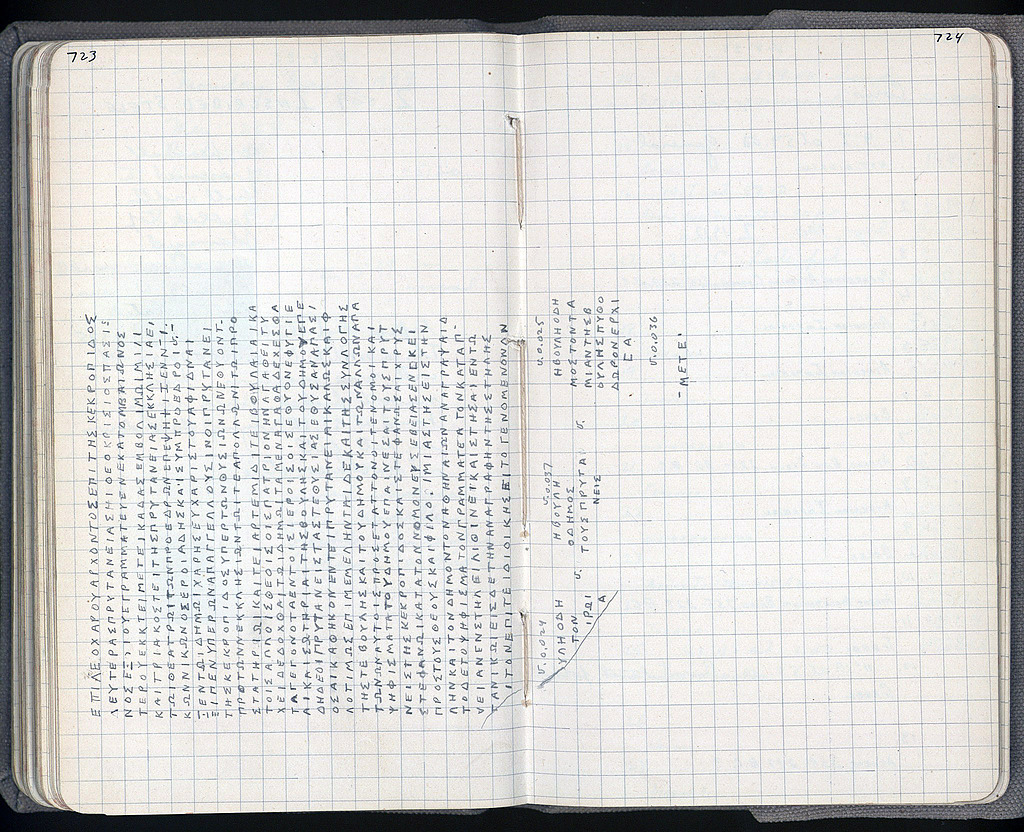 723
ΕΠΙΛΕΟΧΑΡΟΥΑΡΧΟΝΤΟΣΕΠΙΤΗΣΚΕΚΡΟΠΙΔΟΣ
ΛΕΥΤΕΡΑΣΠΡΥΤΑΝΕΙΑΣΗΙΘΕΟΚΡΙΣΙΟΣΠΑΣΙΞ
ΝΟΣΕΞΟΙΟΥΕΓΡΑΜΜΑΤΕΥΕΝΕΚΑΤΟΜΒΑΙΩΝΟΣ
ΤΕΡΟΥΕΚΚΤΕΙΜΕΤΕΙΚΑΔΑΣΕΜΒΟΛΙΜΩΙΜΙΑΙ
ΚΑΙΤΡΙΑΚΟΣΤΕΙΤΗΣΠΡΥΤΑΝΕΙΑΣΕΚΚΛΗΣΙΑΕ
ΤΩΙΘΕΑΤΡΩΙΤΩΝΠΡΟΕΔΡΩΝΕΠΕΨΗΦΙΙΕΝ
ΚΩΝΝΙΚΩΝΟΣΕΡΟΙΑΔΗΣΚΑΙΣΥΜΠΡΟΕΔΡΟΙ
ΞΕΝΤΩΙΔΗΜΩΙΧΑΡΗΣΕΥΧΑΡΙΣΤΟΥΑΦΙΔΝΑΙ
ΕΙΠΕΝΥΠΕΡΩΝΑΠΑΓΓΕΛΛΟΥΣΙΝΟΙΠΡΥΤΑΝΕΙ
ΤΗΣΚΕΚΡΟΠΙΔΟΣΥΠΕΡΤΩΝΘΥΣΙΩΝΩΝΕΘΥΟΝΤ
ΠΡΟΤΩΝΕΚΚΛΗΣΙΩΝΤΩΙΤΕΑΠΟΛΛΩΝΙΤΩΙΠΡΟ
ΣΤΑΤΗΡΙΩΙΚΑΙΤΕΙΑΡΤΕΜΙΔΙΤΕΙΒΟΥΛΑΙΑΙΚΑ
ΤΟΙΣΑΛΛΟΙΣΘΕΟΙΣΟΙΣΠΑΤΡΙΟΝΗΝΑΓΑΘΕΙΤΥ
ΧΕΙΔΕΔΟΧΘΑΙΤΩΙΔΗΜΩΙΤΑΜΕΝΑΓΑΘΑΔΕΧΕΣΘΑ
ΤΑΓΕΓΟΝΟΤΑΕΝΤΟΙΣΙΕΡΟΙΣΟΙΣΕΘΥΟΝΕΦΥΓΙΕ
ΑΙΚΑΙΣΩΤΗΡΙΑΙΤΗΣΒΟΥΛΗΣΚΑΙΤΟΥΔΗΜΟΥΕΠΕ
ΔΗΔΕΟΙΠΡΥΤΑΝΕΙΣΤΑΣΤΕΘΥΣΙΑΣΕΘΥΣΑΝΑΠΑΣ
ΟΣΑΙΚΑΘΗΚΟΝΕΝΤΕΙΠΡΥΤΑΝΕΙΑΙΚΑΛΩΣΚΑΙΦ
ΛΟΤΙΜΩΣΕΠΙΜΕΜΕΛΗΝΤΑΙΔΕΚΑΙΤΗΣΣΥΛΛΟΓΗΣ
ΤΗΣΤΕΒΟΥΛΗΣΚΑΙΤΟΥΔΗΜΟΥΚΑΙΤΩΝΑΛΛΩΝΑΠΑ
ΤΩΝΩΝΑΥΤΟΙΣΠΡΟΣΕΤΑΤΤΟΝΟΙΤΕΝΟΜΟΙΚΑΙ
ΨΗΦΙΣΜΑΤΑΤΟΥΔΗΜΟΥΕΠΑΙΝΕΣΑΙΤΟΥΣΠΡΥΤ
ΝΕΙΣΤΗΣΚΕΚΡΟΠΙΔΟΣΚΑΙΣΤΕΦΑΝΩΣΑΙΧΡΥΣ
ΣΤΕΦΑΝΩΙΚΑΤΑΤΟΝΝΟΜΟΝΕΥΣΕΒΕΙΑΣΕΝΕΚΕΙ
ΠΡΟΣΤΟΥΣΘΕΟΥΣΚΑΙΦΙΛΟ.ΙΜΙΑΣΤΗΣΕΙΣΤΗΝ
ΛΗΝΚΑΙΤΟΝΔΗΜΟΝΤΟΝΑΘΗΝΑΙΩΝΑΝΑΓΡΑΨΑΙΔ
ΤΟΔΕΤΟΨΗΦΙΣΜΑΤΟΝΓΡΑΜΜΑΤΕΑΤΟΝΚΑΤΑΠ
ΝΕΙΑΝΕΝΣΤΗΛΕΙΛΙΘΙΝΕΙΚΑΙΣΤΗΣΑΙΕΝΤΩ
ΤΑΝΙΚΩΙΕΙΣΔΕΤΗΝΑΝΑΓΡΑΦΗΝΤΗΣΣΤΗΛΗΣ
ΙΤΟΝΕΠΙΤΕΙΔΙΟΙΚΗΣΕΙΤΟΓΕΝΟΜΕΝΟΝΑΝ
724
υ.0.024
ΥΛΗΟΔΗ
ΤΟΝ
ΙΡΩΙ
Α
υ.
υ.0.037
ΗΒΟΥΛΗ
ΟΔΗΜΟΣ
ΤΟΥΣΠΡΥΤΑ
ΝΕΙΣ
υ.
υ.0.025
ΗΒΟΥΛΗΟΔΗ
ΜΟΣΤΟΝΤΑ
ΜΙΑΝΤΗΣΒ
ΟΥΛΗΣΠΥΘΟ
ΔΩΡΟΝΕΡΧΙ
.ΕΑ.
υ.0.036
-ΜΕΤΕ.